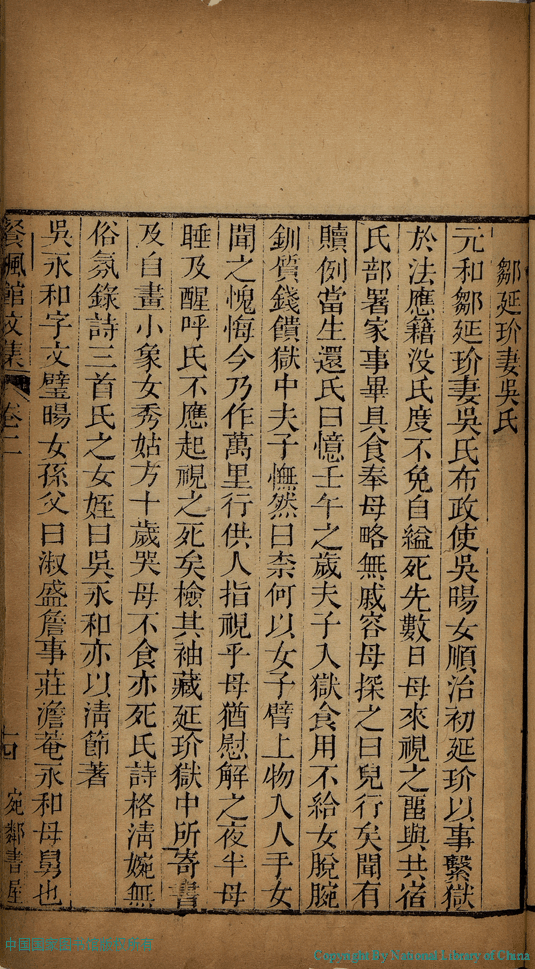 鄒延玠妻吳氏
元和鄒延玠妻吳氏布政使吳暘女順治初延玠以事繫獄
於法應籍没氏度不免自縊死先數日母來視之畱與共宿
氏部署家事畢具食奉母略無戚容母探之曰兒行矣聞有
贖例當生還氏曰憶壬午之歲夫子入獄食用不給女脫腕
釧質錢饋獄中夫子憮然曰柰何以女子臂上物入人手女
聞之愧悔今乃作萬里行供人指視乎母猶慰解之夜半母
睡及醒呼氏不應起視之死矣檢其袖藏延玠獄中所寄書
及自畫小象女秀姑方十歲哭母不食亦死氏詩格淸婉無
俗氛錄詩三首氏之女姪曰吳永和亦以淸節著
吳永和字文璧暘女孫父曰淑盛詹事莊澹菴永和母舅也
餐楓館文集 卷二 十四 宛鄰書屋
中国国家图书馆版权所有
Copyright By National Library of China